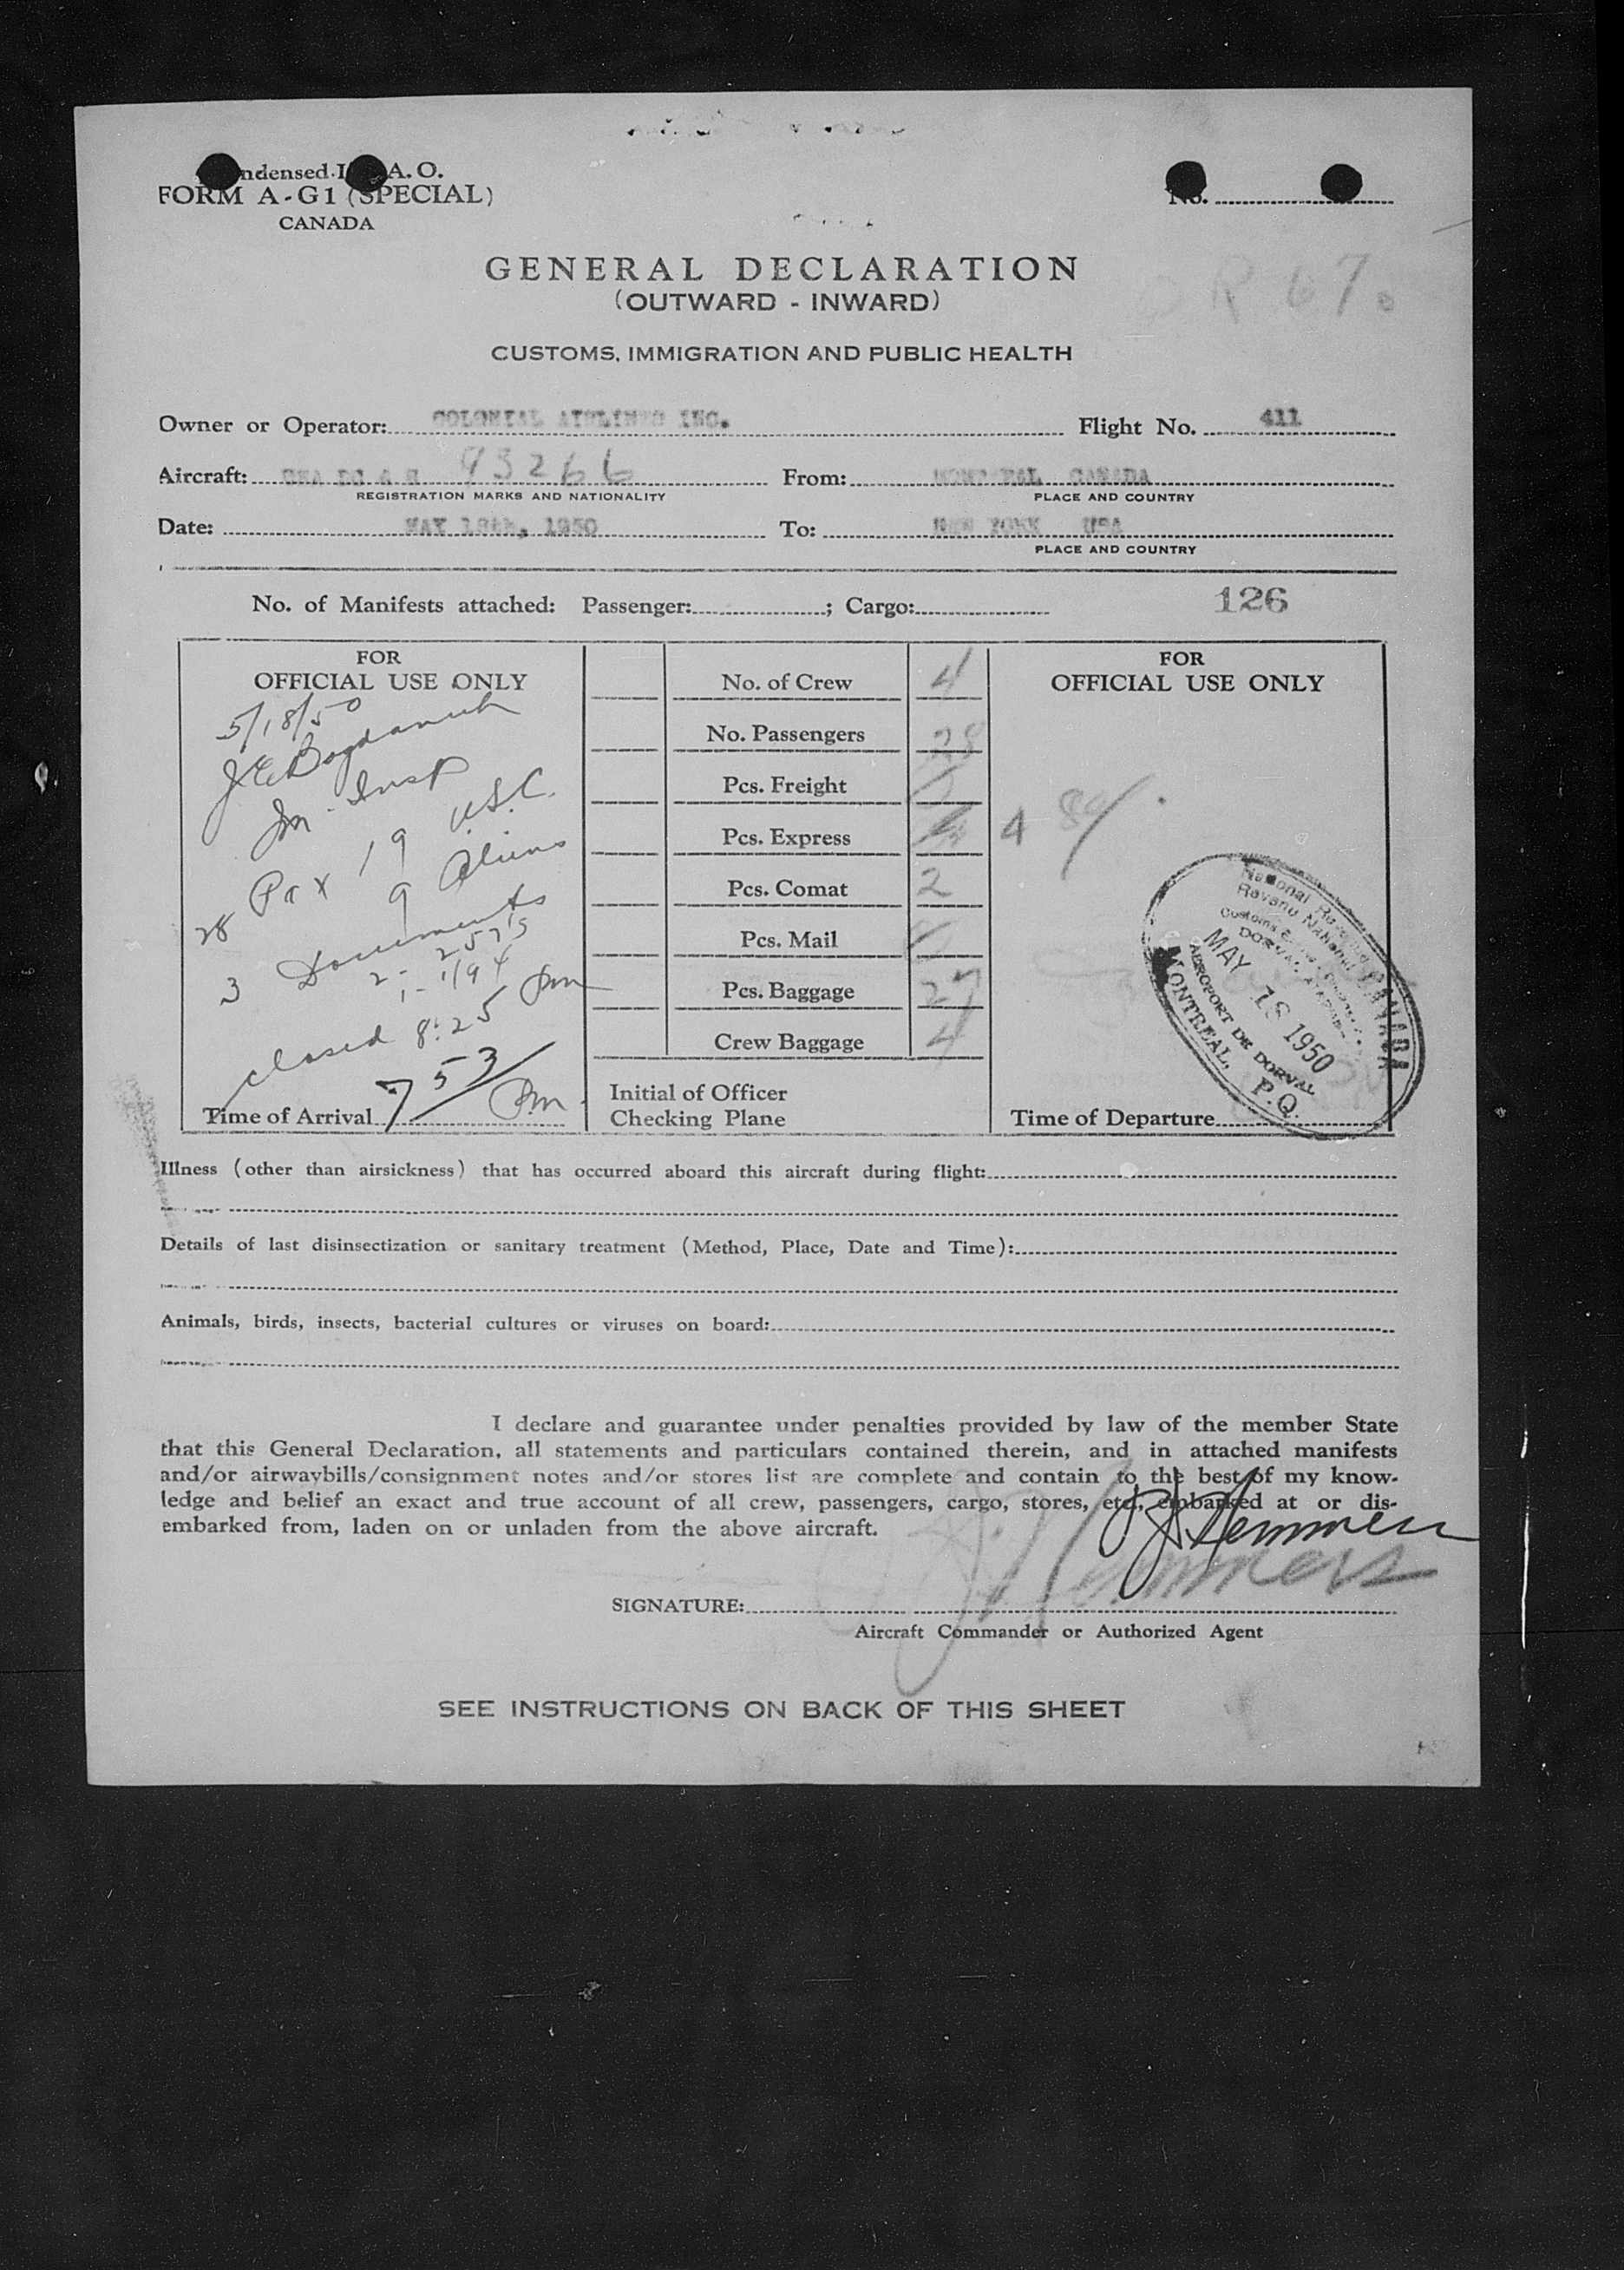 ndensed I A.O.
FORM A-G1 (SPECIAL)
CANADA
No.
GENERAL DECLARATION
(OUTWARD - INWARD)
R. 67
CUSTOMS, IMMIGRATION AND PUBLIC HEALTH
Owner or Operator: COLONIAL AIRLINES INC. Flight No. 411
Aircraft: DC 4 93266 From: MONTREAL CANADA
REGISTRATION MARKS AND NATIONALITY PLACE AND COUNTRY
Date: MAY 18th, 1950 To: NEW YORK USA
PLACE AND COUNTRY
No. of Manifests attached: Passenger: ; Cargo: 126
FOR
OFFICIAL USE ONLY
5/18/50
Im. Insp
28 Pax 19 U.S.C.
9 Aliens
3 Documents
2 - 257's
1 - I194
closed 8:25 pm
Time of Arrival 7 53 Pm.
No. of Crew 4
No. Passengers 28
Pcs. Freight
Pcs. Express
Pcs. Comat 2
Pcs. Mail
Pcs. Baggage 27
Crew Baggage 4
Initial of Officer
Checking Plane
FOR
OFFICIAL USE ONLY
4
National Revenue
Revenu National
CANADA
MAY 18 1950
AEROPORT DE DORVAL
MONTREAL, P.Q.
Time of Departure
Illness (other than airsickness) that has occurred aboard this aircraft during flight:
Details of last disinsectization or sanitary treatment (Method, Place, Date and Time):
Animals, birds, insects, bacterial cultures or viruses on board:
I declare and guarantee under penalties provided by law of the member State
that this General Declaration, all statements and particulars contained therein, and in attached manifests
and/or airwaybills/consignment notes and/or stores list are complete and contain to the best of my know-
ledge and belief an exact and true account of all crew, passengers, cargo, stores, etc., embarked at or dis-
embarked from, laden on or unladen from the above aircraft.
SIGNATURE:
Aircraft Commander or Authorized Agent
SEE INSTRUCTIONS ON BACK OF THIS SHEET